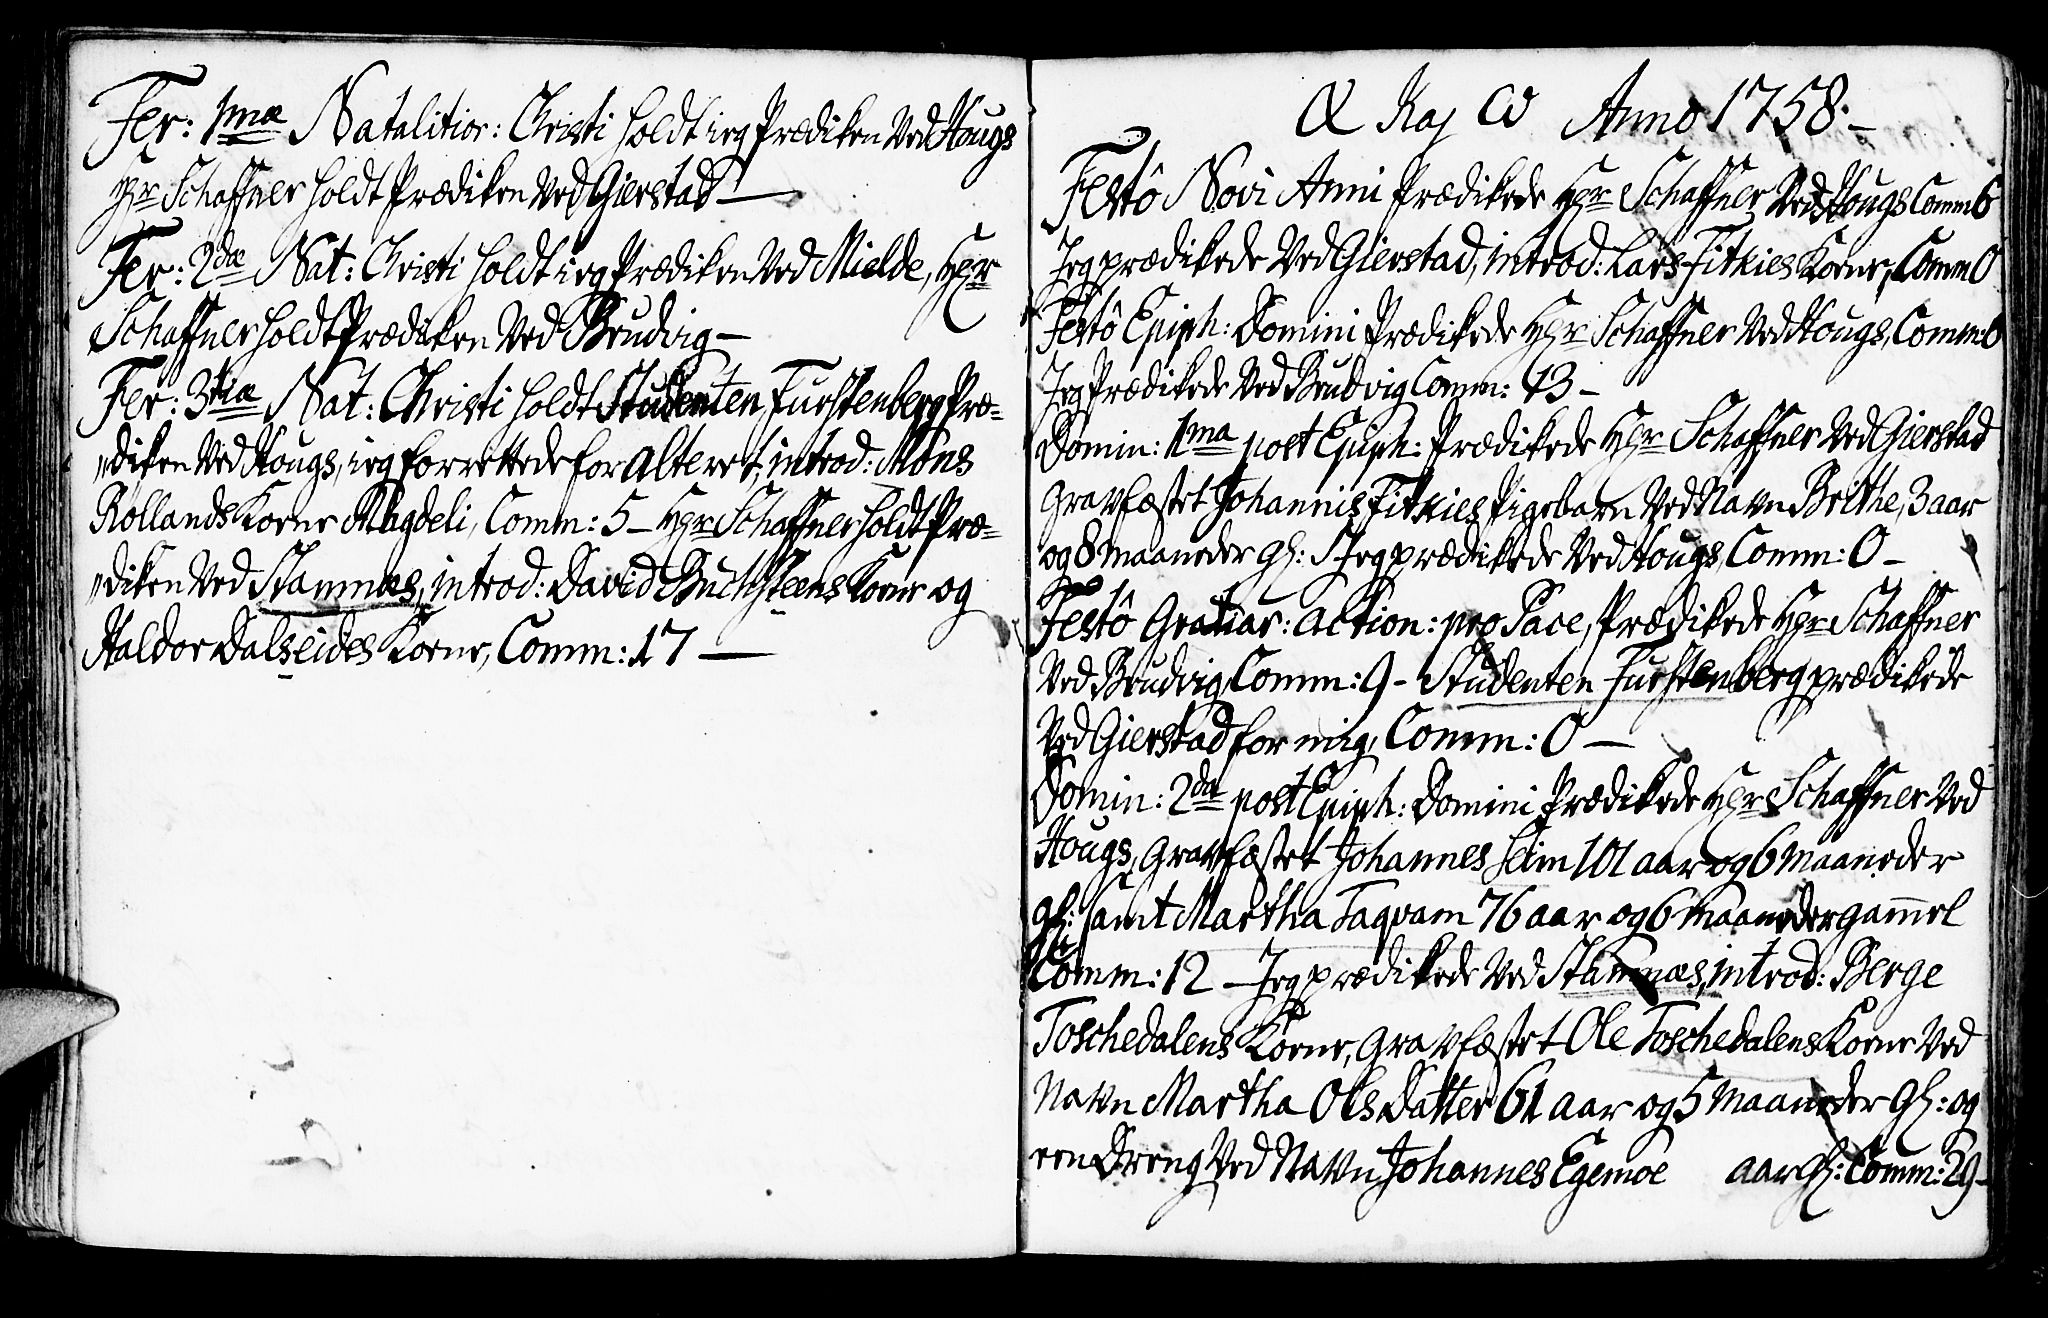 Fer: 1mæ Natalitior: Christi holdt ieg Prædiken Ved Hougs
Hr Schaffner holdt Prædiken Ved Gierstad —
Fer: 2dæ Nat: Christi holdt ieg Prædiken Ved Mielde, Hr
Schaffner holdt Prædiken Ved Brudvig —
Fer: 3tiæ Nat: Christi holdt Studenten Furstenberg Præ=
"diken Ved Hougs, ieg forrettede for alteret, introd: Mons
Rollands Kone Magdeli, Comm: 5 — Hr Schaffner holdt Præ=
"diken Ved Stamnæs, introd: David Buchsteens Kone og
Haldor Dalseides Kone, Comm: 17 —
Α Kaj Ω Anno 1758. —
Festô Novi Anni Prædikede Hr Schaffner Ved Hougs Comm 6
Jeg prædikede Ved Gierstad, introd: Lars Fitkies Kone, Comm 0
Festô Epiph: Domini Prædikede Hr Schaffner Ved Hougs, Comm: 0
Jeg Prædikede Ved Brudvig Comm: 13 —
Domin: 1ma post Epiph: Prædikede Hr Schaffner Ved Gierstad
Gravfæstet Johannis Fitkies Pigebarn Ved Navn Brithe, 3 aar
og 8 maaneder gl: Jeg prædikede Ved Hougs, Comm: 0 —
Festô Gratiar: action: pro Pace, Prædikede Hr Schaffner
Ved Brudvig, Comm: 9 — Studenten Furstenberg prædikede
Ved Gierstad for mig, Comm: 0 —
Domin: 2dæ post Epiph: Domini Prædikede Hr Schaffner Ved
Hougs, Gravfæstet Johannes Heim 101 aar og 6 maaneder
gl: samt Martha Taqvam 76 aar og 6 maaneder gam̄el
Comm: 12 — Jeg prædikede Ved Stamnæs, introd: Berge
Toschedalens Kone, Gravfæstet Ole Toschedalens Kone Ved
Navn Martha Ols Datter 61 aar og 5 maaneder gl: og
een Dreng Ved Navn Johannes Egemoe aar gl: Comm: 29 —